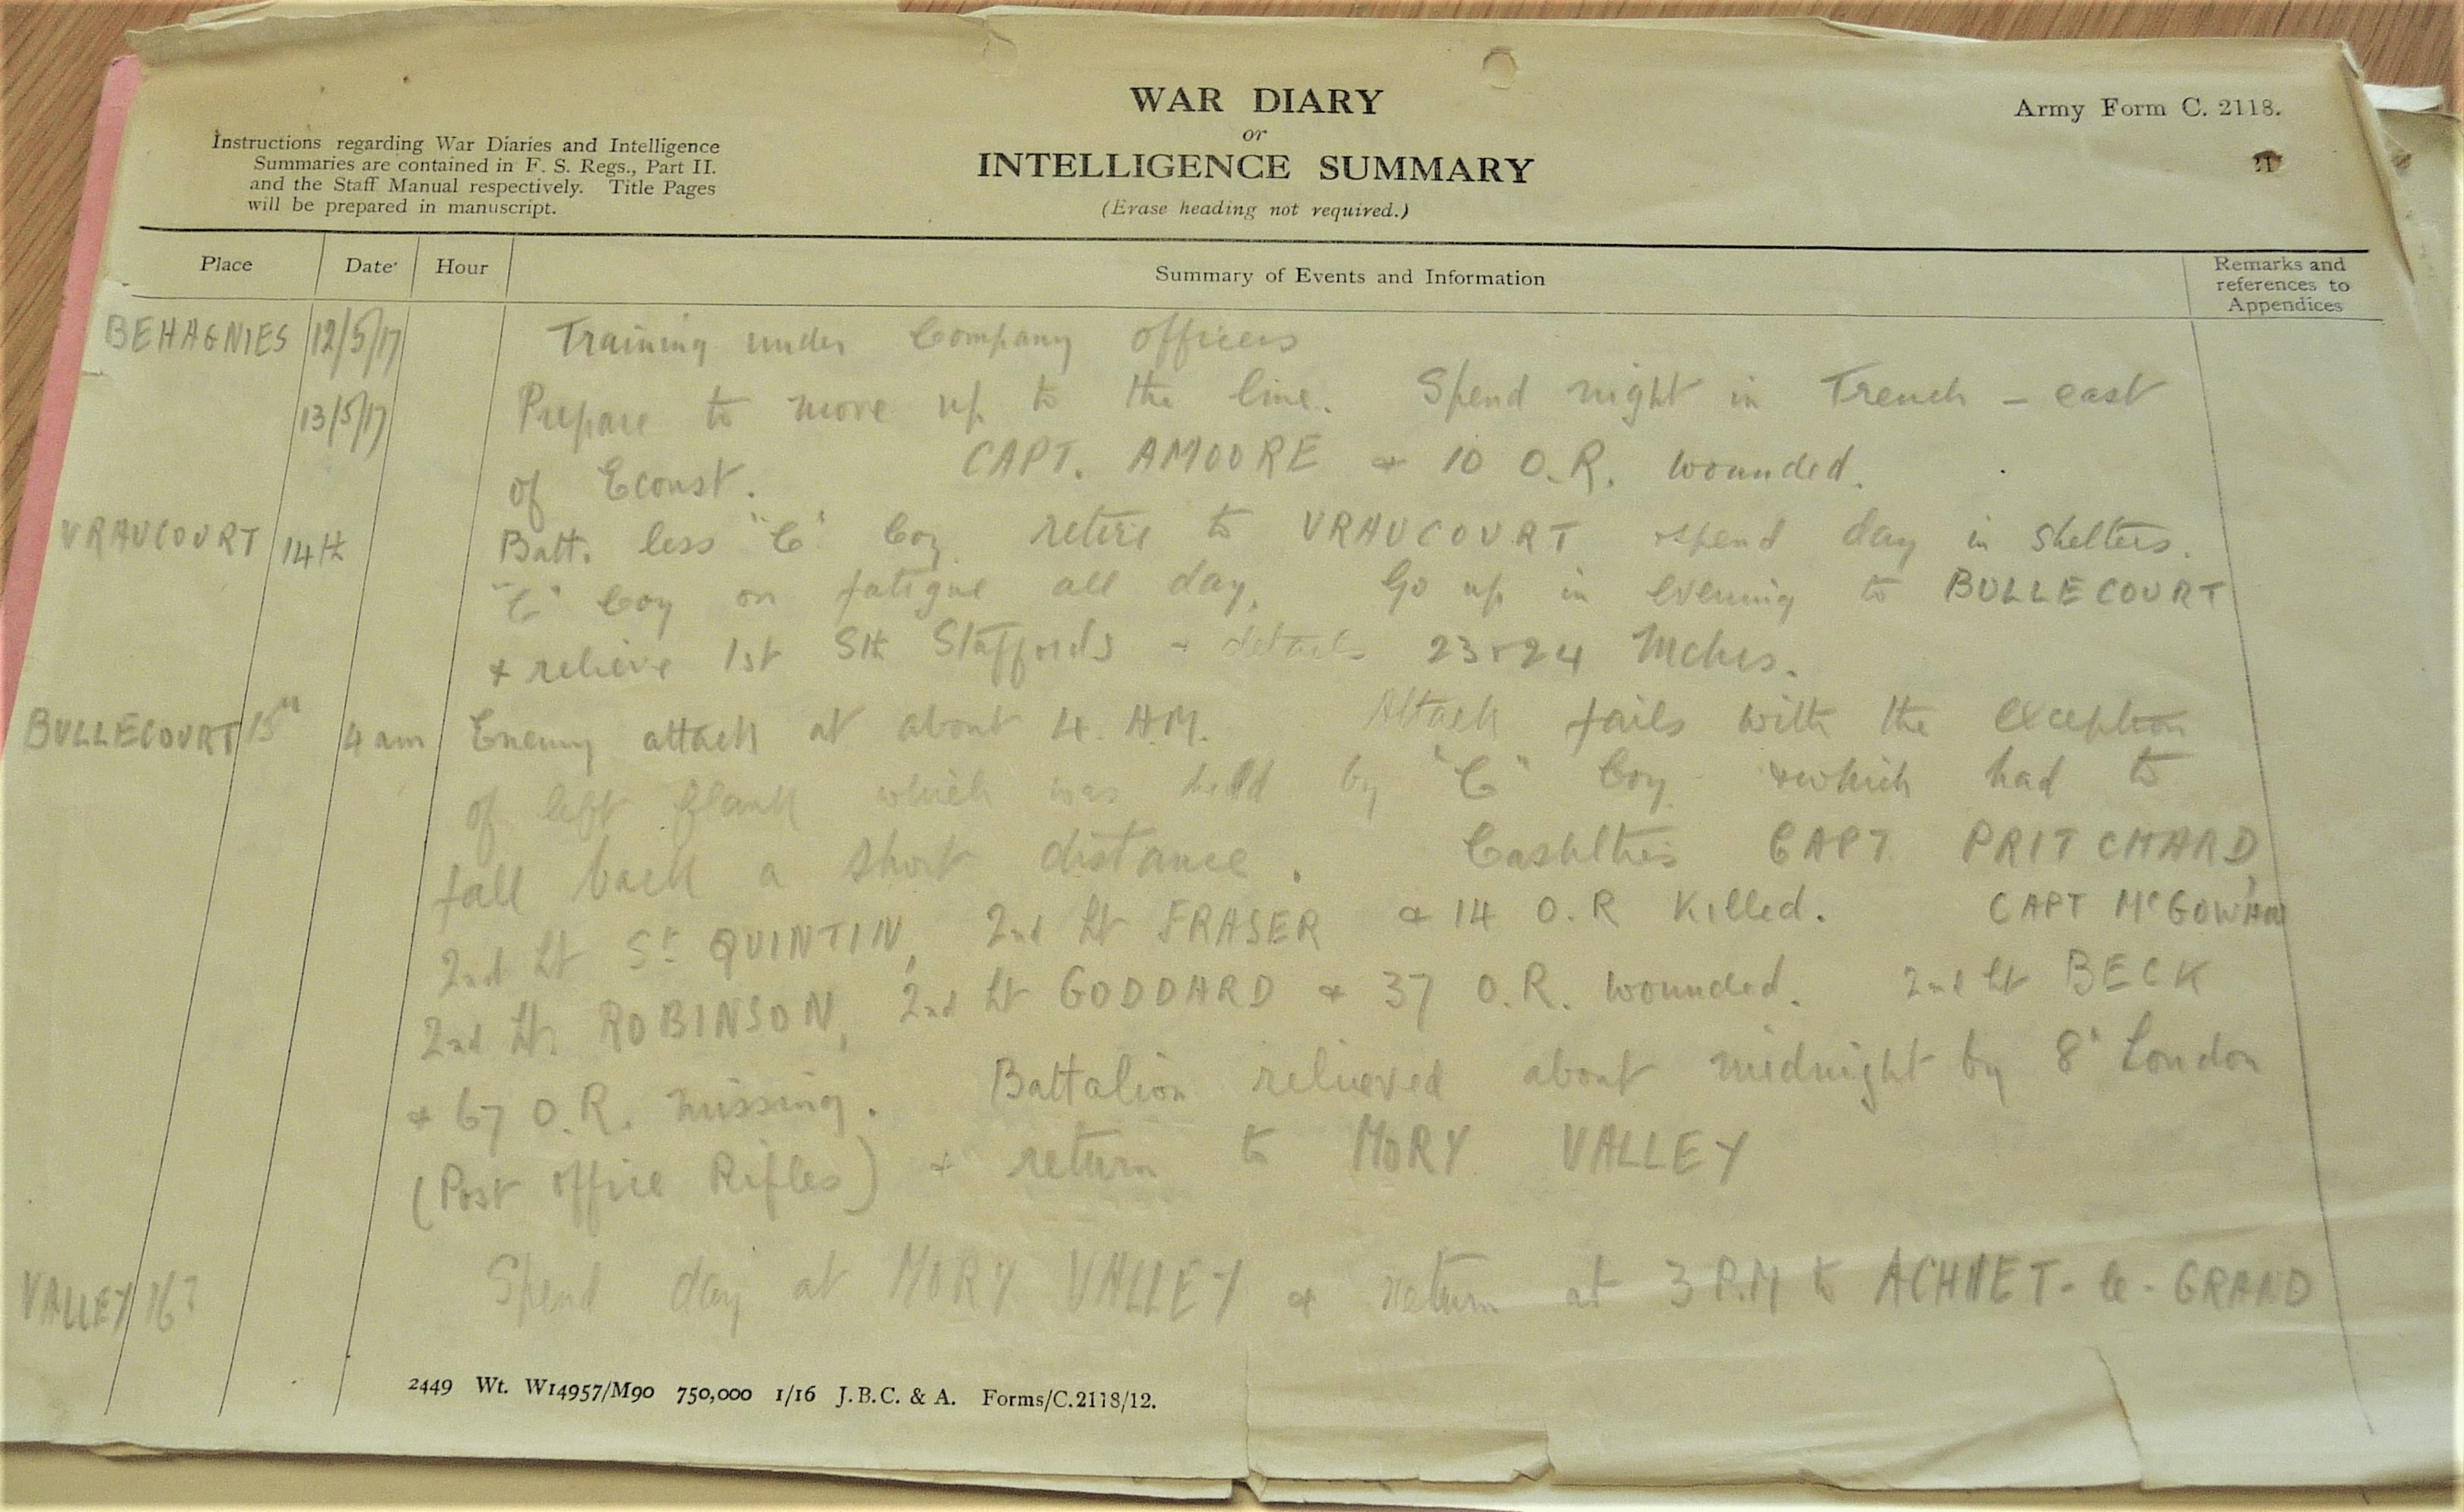 WAR DIARY
or
INTELLIGENCE SUMMARY
(Erase heading not required.)
Army Form C. 2118.
21
Instructions regarding War Diaries and Intelligence
Summaries are contained in F. S. Regs., Part II.
and the Staff Manual respectively. Title Pages
will be prepared in manuscript.
Place Date Hour Summary of Events and Information Remarks and
references to
Appendices
BEHAGNIES 12/5/17 Training under Company officers
13/5/17 Prepare to move up to the line. Spend night in Trench - east
of Ecoust. CAPT. AMOORE & 10 O.R. wounded.
VRAUCOURT 14th Batt. less "C" Coy retire to VRAUCOURT spend day in shelters.
"C" Coy on fatigue all day. Go up in evening to BULLECOURT
& relieve 1st Sth Staffords & details 23 & 24 Mchrs.
BULLECOURT 15th 4 am Enemy attack at about 4. A.M. Attack fails with the exception
of left flank which was held by "C" Coy & which had to
fall back a short distance. Cashlties CAPT. PRITCHARD,
2nd Lt St QUINTIN, 2nd Lt FRASER & 14 O.R Killed. CAPT McGOWAN
2nd Lt. ROBINSON, 2nd Lt GODDARD & 37 O.R. wounded. 2nd Lt BECK
& 67 O.R. missing. Battalion relieved about midnight by 8' London
(Post office Rifles) & return to MORY VALLEY
VALLEY 16 Spend day at MORY VALLEY & return at 3 P.M to ACHIET-le-GRAND
2449 Wt. W14957/M90 750,000 1/16 J.B.C. & A. Forms/C.2118/12.